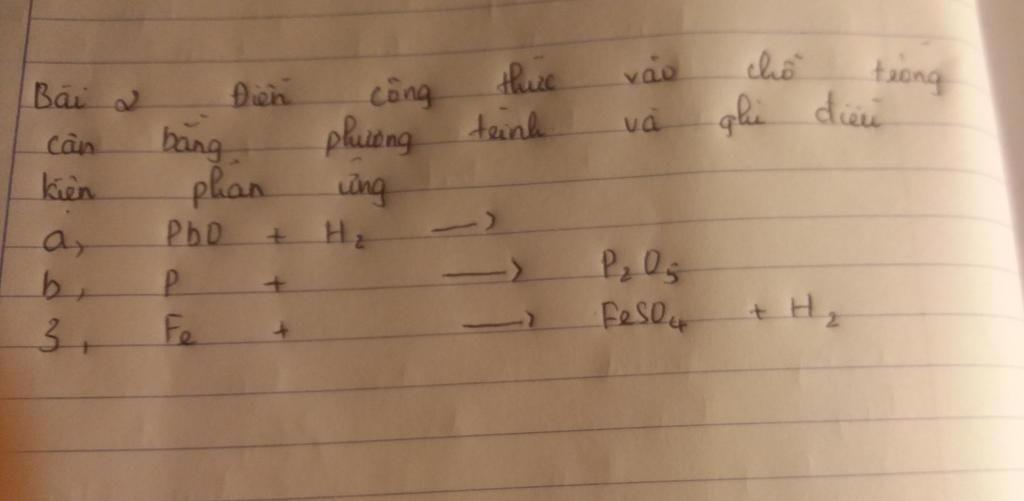 Bài 2 Điền công thức vào chỗ trống
cân bằng phương trình và ghi điều
kiện phản ứng
a, PbO + H₂ →
b, P + → P₂O₅
3, Fe + → FeSO₄ + H₂